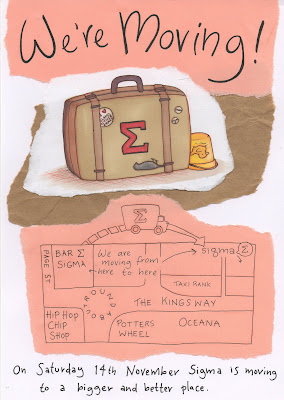 We're Moving!
Σ
Σ
PAGE ST
BAR Σ
SIGMA
We are
moving from
here to here
sigma Σ
TAXI RANK
ROUNDABOUT
THE KINGSWAY
HIP HOP
CHIP
SHOP
POTTERS
WHEEL
OCEANA
On Saturday 14th November Sigma is moving
to a bigger and better place.